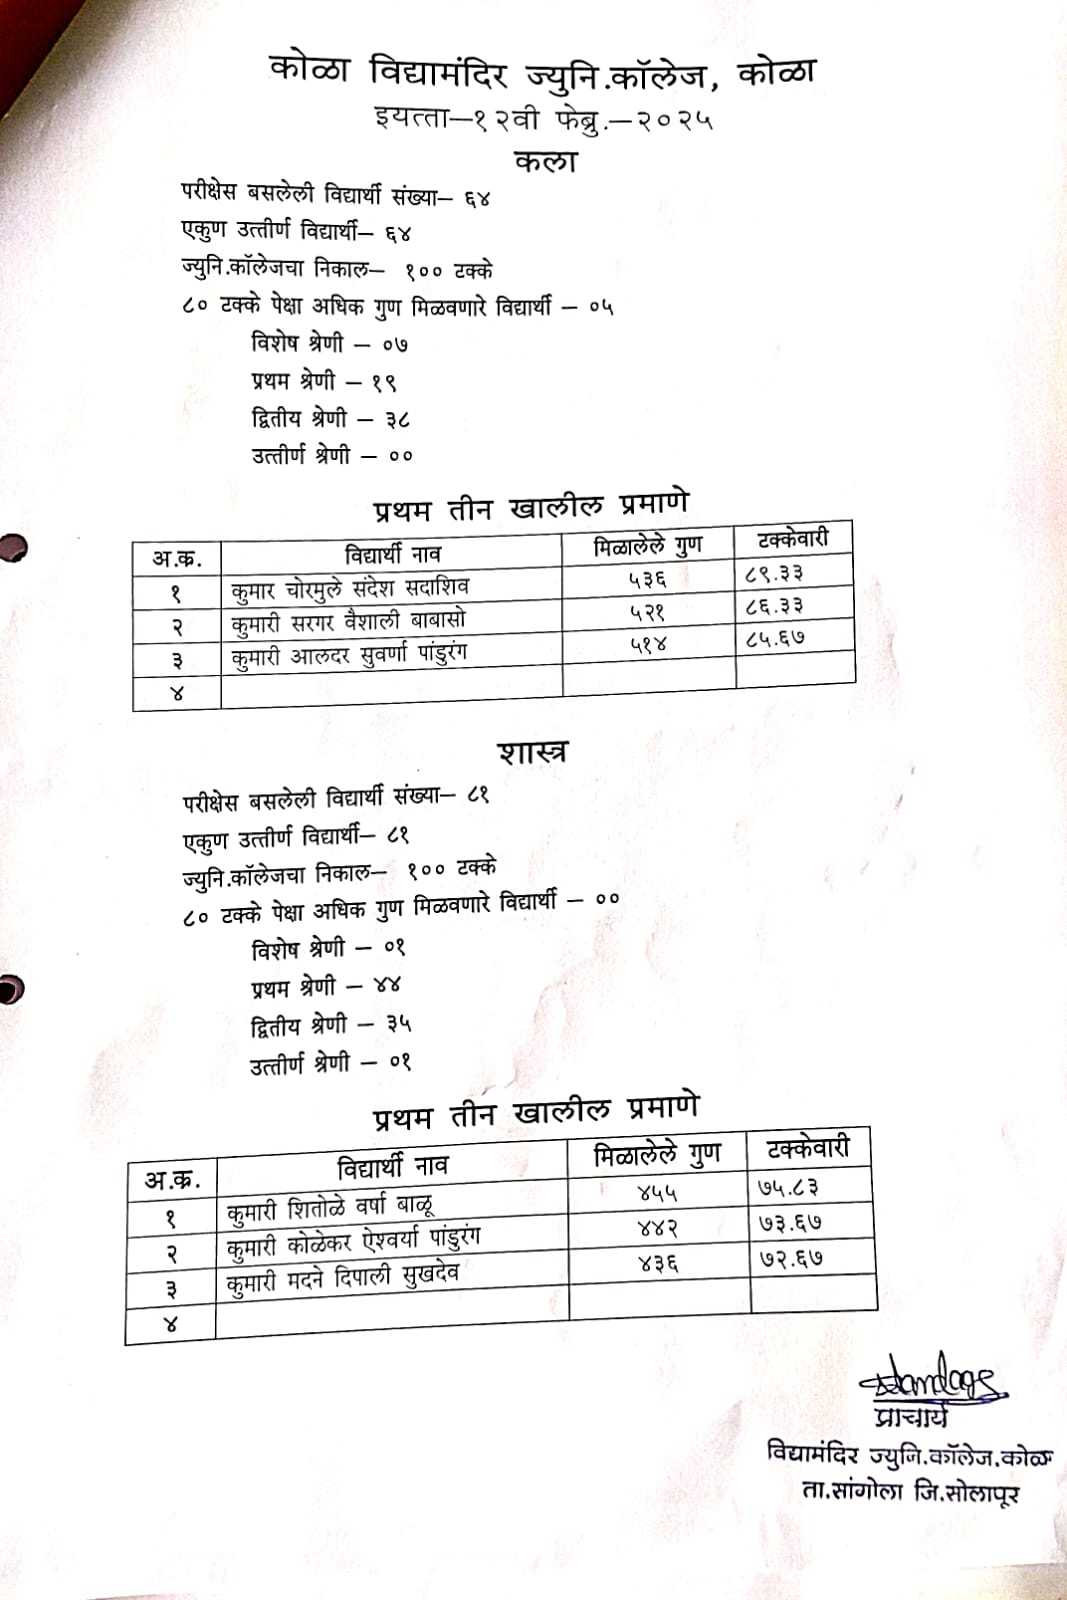 कोळा विद्यामंदिर ज्युनि.कॉलेज, कोळा
इयत्ता–१२वी फेब्रु.–२०२५
कला
परीक्षेस बसलेली विद्यार्थी संख्या– ६४
एकुण उत्तीर्ण विद्यार्थी– ६४
ज्युनि.कॉलेजचा निकाल– १०० टक्के
८० टक्के पेक्षा अधिक गुण मिळवणारे विद्यार्थी – ०५
विशेष श्रेणी – ०७
प्रथम श्रेणी – १९
द्वितीय श्रेणी – ३८
उत्तीर्ण श्रेणी – ००
प्रथम तीन खालील प्रमाणे
अ.क्र. विद्यार्थी नाव मिळालेले गुण टक्केवारी
१ कुमार चोरमुले संदेश सदाशिव ५३६ ८९.३३
२ कुमारी सरगर वैशाली बाबासो ५२१ ८६.३३
३ कुमारी आलदर सुवर्णा पांडुरंग ५१४ ८५.६७
४
शास्त्र
परीक्षेस बसलेली विद्यार्थी संख्या– ८१
एकुण उत्तीर्ण विद्यार्थी– ८१
ज्युनि.कॉलेजचा निकाल– १०० टक्के
८० टक्के पेक्षा अधिक गुण मिळवणारे विद्यार्थी – ००
विशेष श्रेणी – ०१
प्रथम श्रेणी – ४४
द्वितीय श्रेणी – ३५
उत्तीर्ण श्रेणी – ०१
प्रथम तीन खालील प्रमाणे
अ.क्र. विद्यार्थी नाव मिळालेले गुण टक्केवारी
१ कुमारी शितोळे वर्षा बाळू ४५५ ७५.८३
२ कुमारी कोळेकर ऐश्वर्या पांडुरंग ४४२ ७३.६७
३ कुमारी मदने दिपाली सुखदेव ४३६ ७२.६७
४
प्राचार्य
विद्यामंदिर ज्युनि.कॉलेज.कोळा
ता.सांगोला जि.सोलापूर